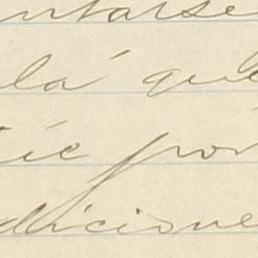 ntarse
lá que
tie por
diciones